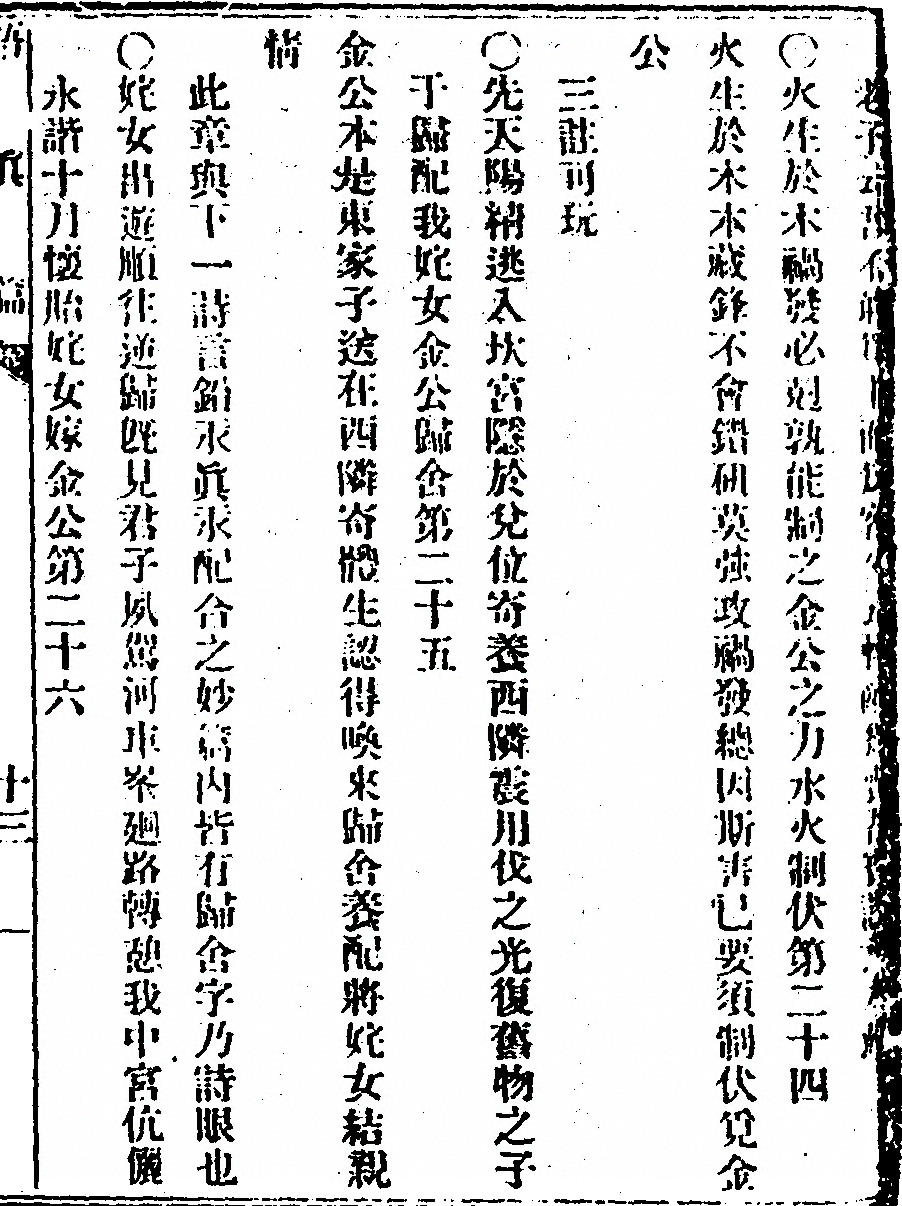 老子
○火生於木禍發必尅孰能制之金公之力水火制伏第二十四
火生於木本藏鋒不會鑽研莫強攻禍發總因斯害己要須制伏覓金
公
三註可玩
○先天陽精逃入坎宮隱於兌位寄養西隣震用伐之光復舊物之子
于歸配我姹女金公歸舍第二十五
金公本是東家子送在西隣寄體生認得喚來歸舍養配將姹女結親
情
此章與下一詩言鉛汞眞汞配合之妙篇內皆有歸舍字乃詩眼也
○姹女出遊順往逆歸旣見君子夙駕河車峯迴路轉憩我中宮伉儷
永諧十月懷胎姹女嫁金公第二十六
悟眞篇
十三